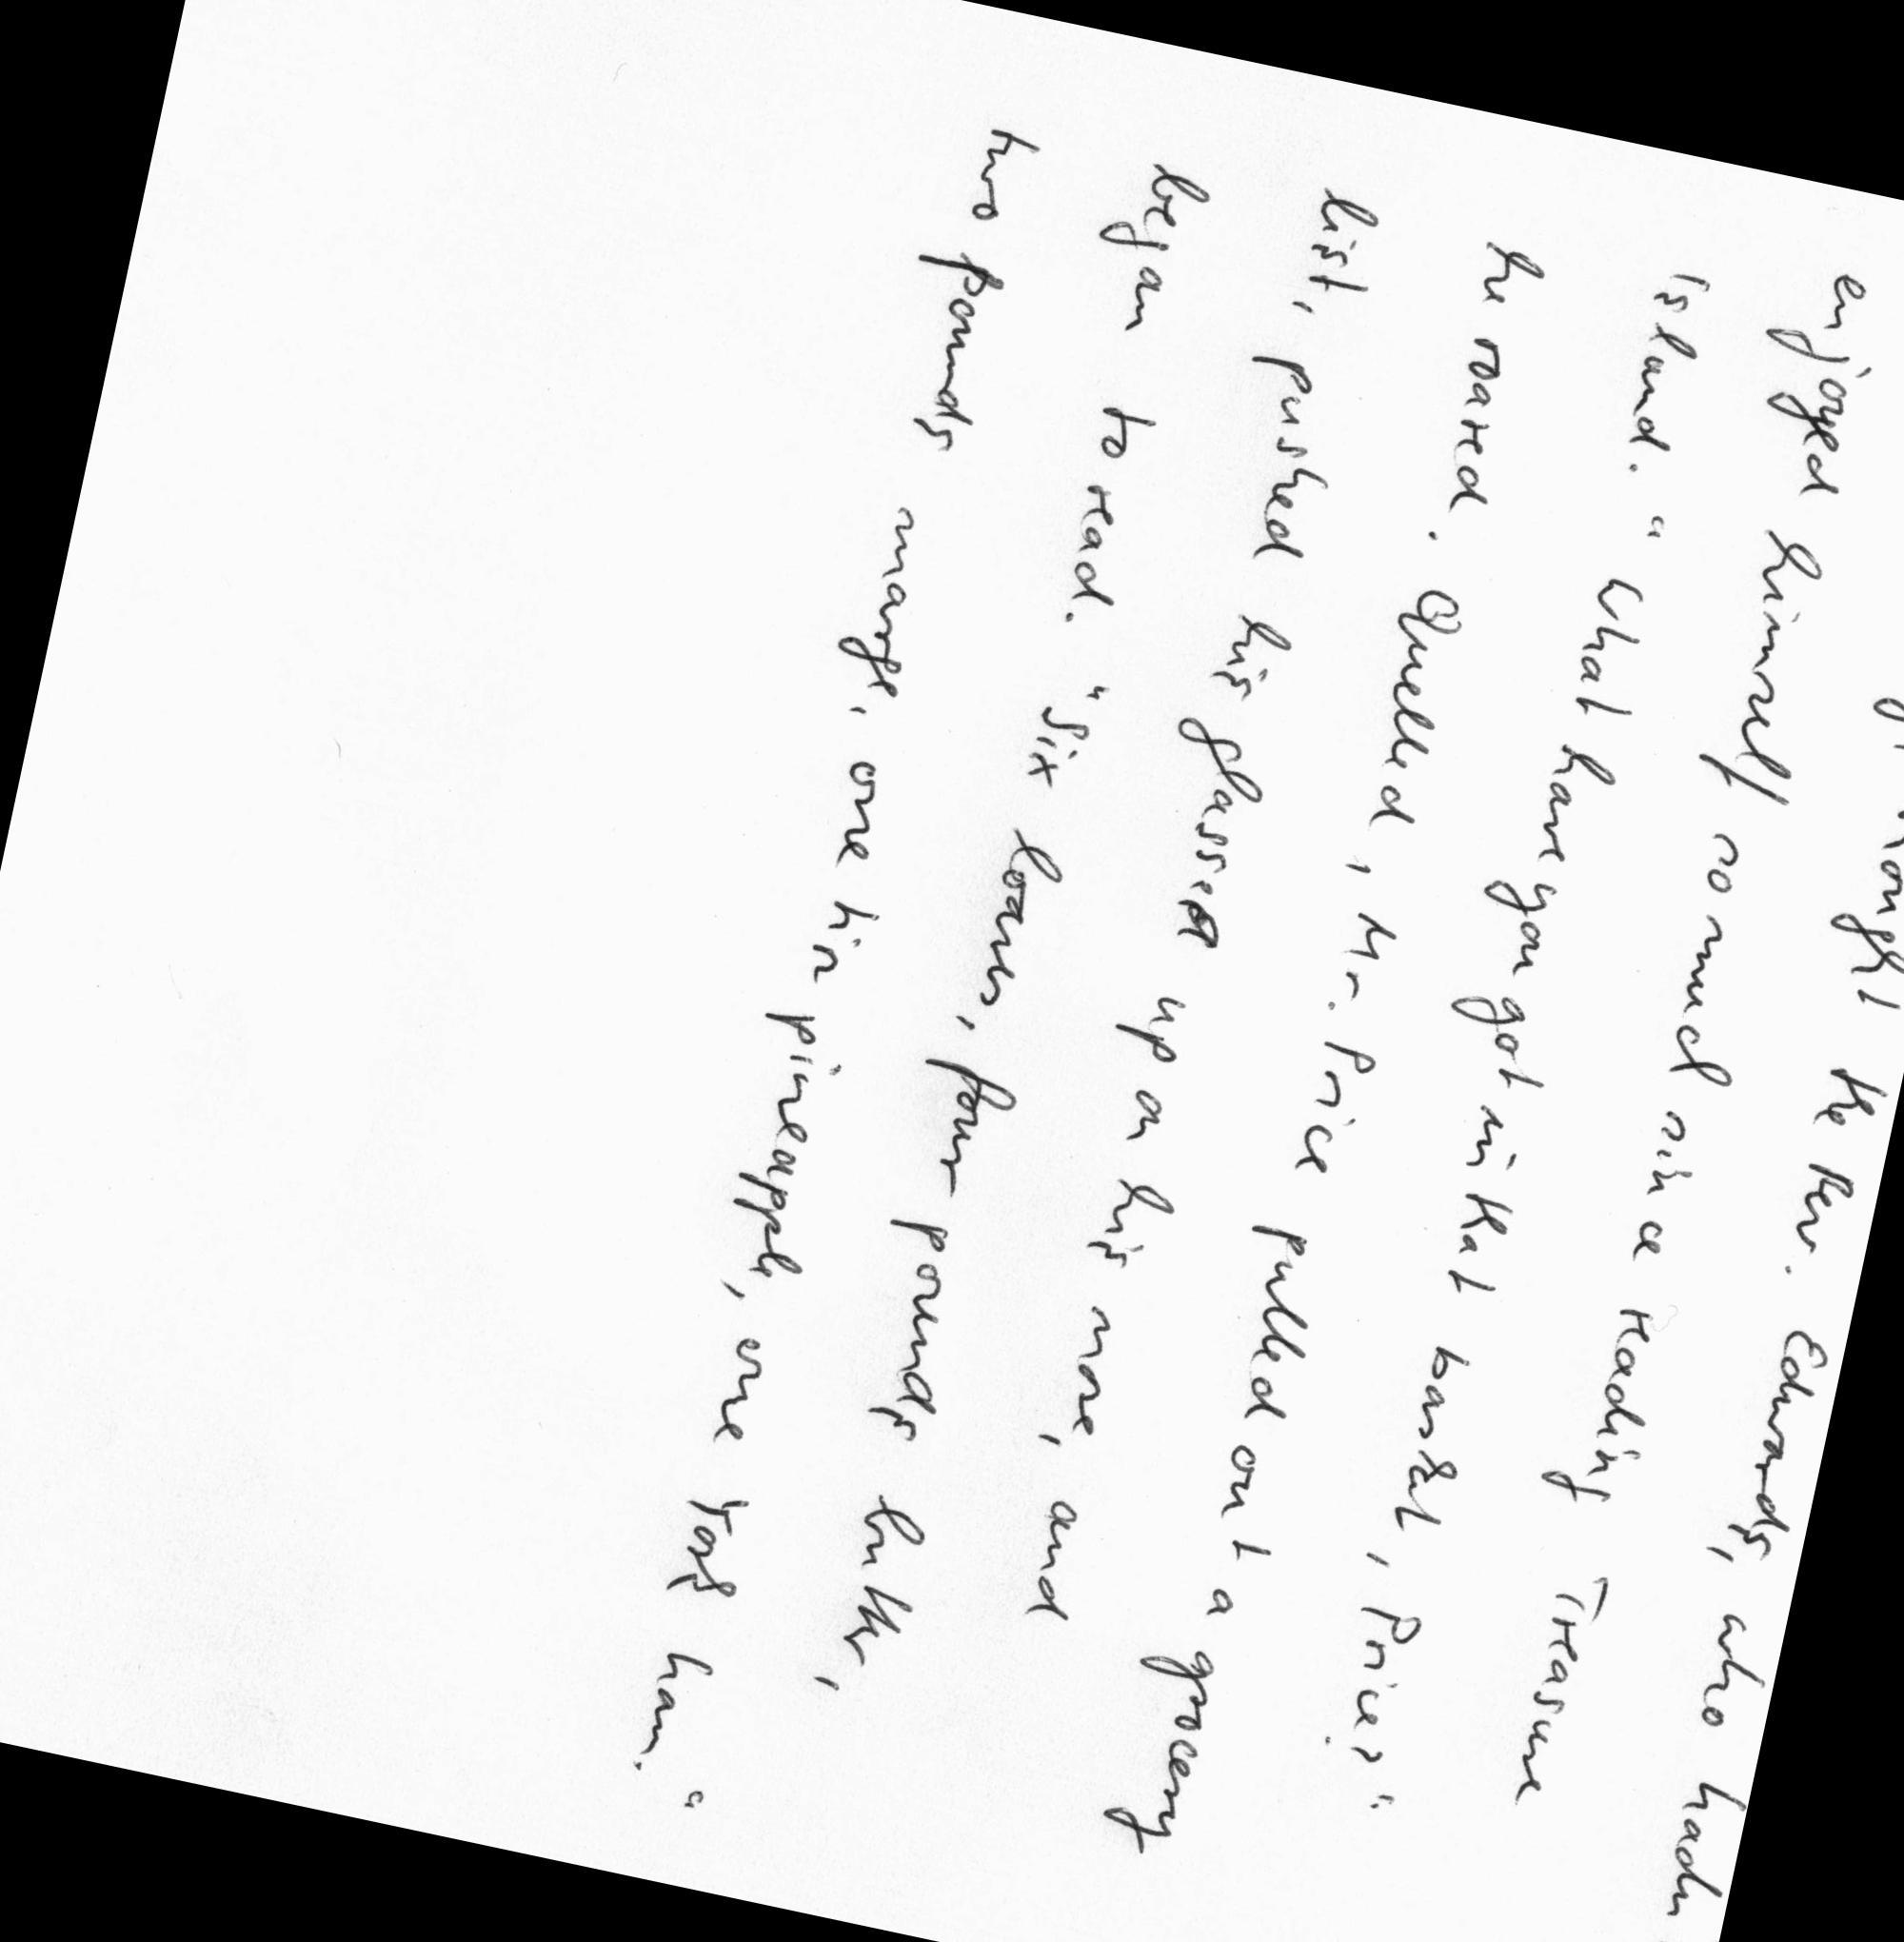 thought the Rev. Edwards, who hadn
enjoyed himself so much since reading Treasure
Island. "What have you got in that basket, Price?"
he roared. Quelled, Mr. Price pulled out a grocery
list, pushed his glasses up on his nose, and
began to read. "Six loaves, four pounds butter,
two pounds marge, one tin pineapple, one York ham."